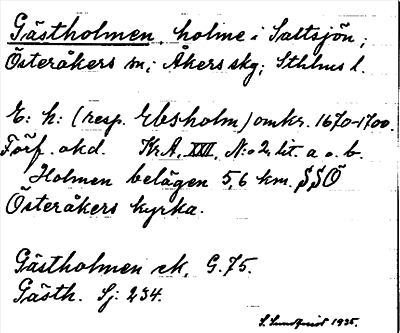 Gästholmen, holme i Saltsjön;
Österåkers sn; Åkers skg; Sthlms l.
E: h: (resp. Ebsholm) omkr. 1670-1700.
Förf. okd. Kr.A, XXII, N:o 2, lit. a o. b.
Holmen belägen 5,6 km. SSÖ
Österåkers kyrka.
Gästholmen ek, G. 75.
Gästh. Sj: 234.
S. Lundqvist 1935.